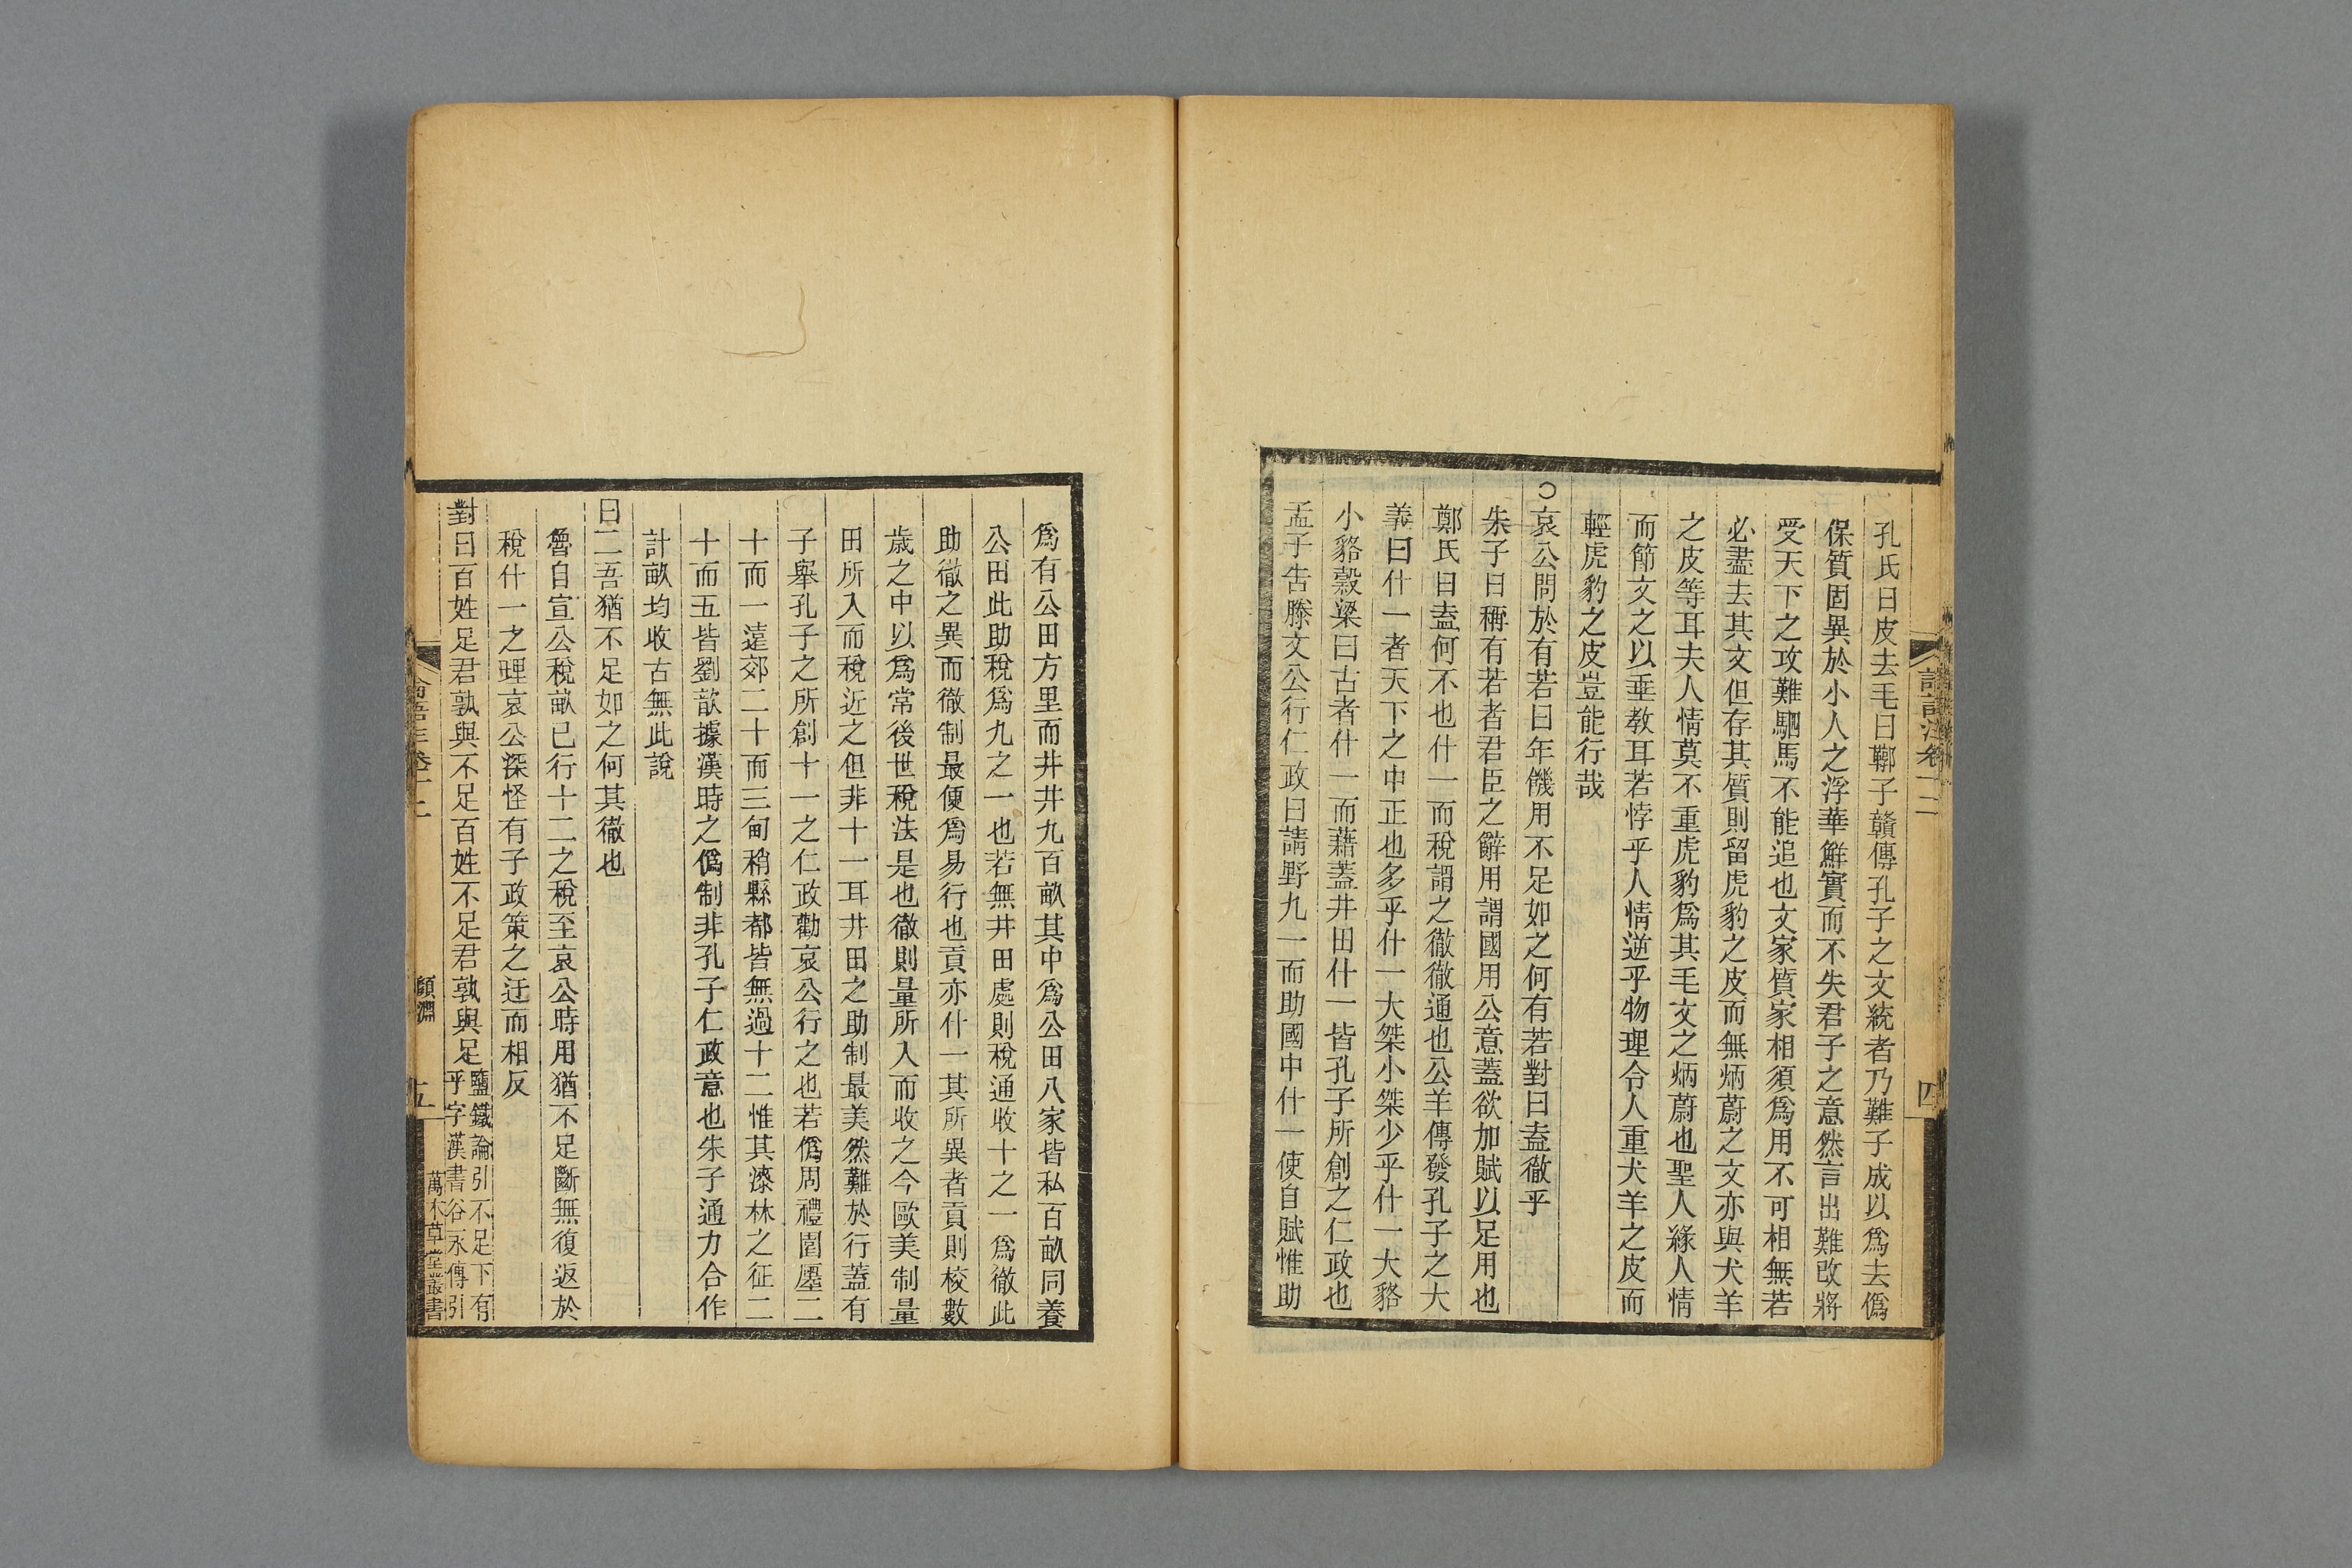 孔氏曰皮去毛曰鞹子贛傳孔子之文統者乃難子成以爲去僞
保質固異於小人之浮華鮮實而不失君子之意然言出難改將
受天下之攻難駟馬不能追也文家質家相須爲用不可相無若
必盡去其文但存其質則留虎豹之皮而無炳蔚之文亦與犬羊
之皮等耳夫人情莫不重虎豹爲其毛文之炳蔚也聖人緣人情
而節文之以垂教耳若悖乎人情逆乎物理令人重犬羊之皮而
輕虎豹之皮豈能行哉
○哀公問於有若曰年饑用不足如之何有若對曰盍徹乎
朱子曰稱有若者君臣之辭用謂國用公意蓋欲加賦以足用也
鄭氏曰盍何不也什一而稅謂之徹徹通也公羊傳發孔子之大
義曰什一者天下之中正也多乎什一大桀小桀少乎什一大貉
小貉穀梁曰古者什一而藉蓋井田什一皆孔子所創之仁政也
孟子告滕文公行仁政曰請野九一而助國中什一使自賦惟助
論語注卷十二
四
爲有公田方里而井井九百畝其中爲公田八家皆私百畝同養
公田此助稅爲九之一也若無井田處則稅通收十之一爲徹此
助徹之異而徹制最便爲易行也貢亦什一其所異者貢則校數
歲之中以爲常後世稅法是也徹則量所入而收之今歐美制量
田所入而稅近之但非十一耳井田之助制最美然難於行蓋有
子舉孔子之所創十一之仁政勸哀公行之也若僞周禮園廛二
十而一遠郊二十而三甸稍縣都皆無過十二惟其漆林之征二
十而五皆劉歆據漢時之僞制非孔子仁政意也朱子通力合作
計畝均收古無此說
曰二吾猶不足如之何其徹也
魯自宣公稅畝已行十二之稅至哀公時用猶不足斷無復返於
稅什一之理哀公深怪有子政策之迂而相反
對曰百姓足君孰與不足百姓不足君孰與足鹽鐵論引不足下有乎字漢書谷永傳引
論語注卷十二
顏淵
五
萬木草堂叢書